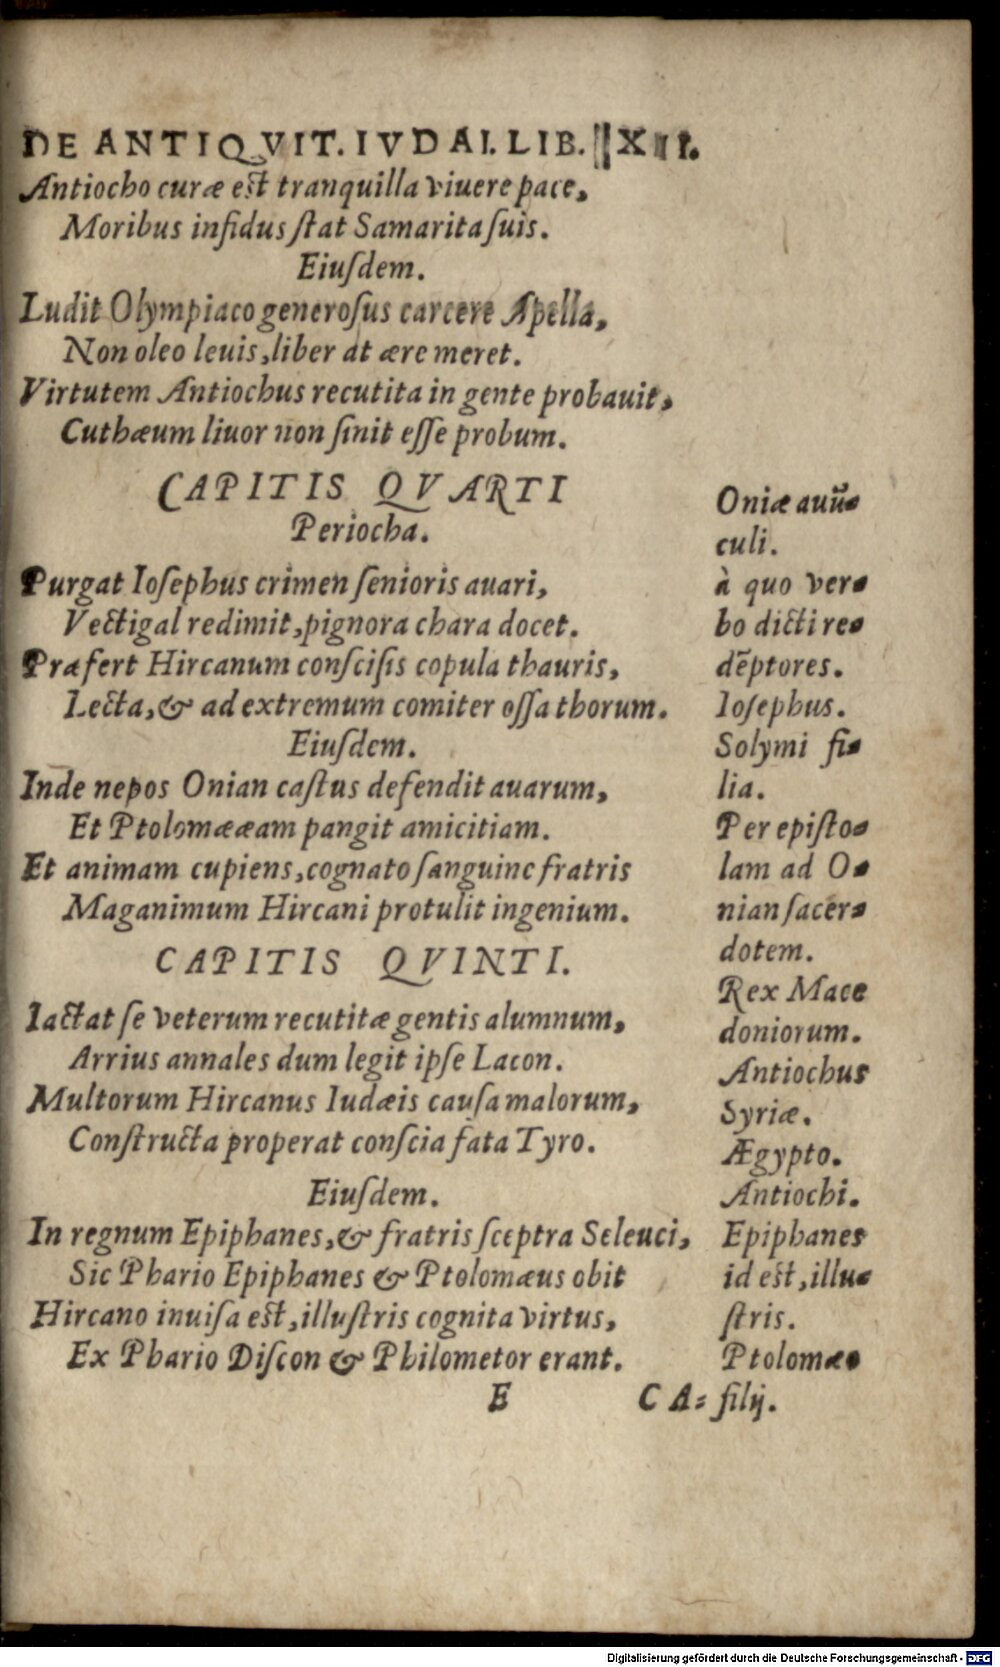 DE ANTIQVIT. IVDAI. LIB. XII.
Antiocho curæ est tranquilla viuere pace,
Moribus infidus ſtat Samarita ſuis.
Eiuſdem.
Ludit Olympiaco generoſus carcere Apella,
Non oleo leuis, liber at ære meret.
Virtutem Antiochus recutita in gente probauit,
Cuthæum liuor non ſinit eſſe probum.
CAPITIS QVARTI
Periocha.
Purgat Ioſephus crimen ſenioris auari,
Vectigal redimit, pignora chara docet.
Præfert Hircanum conſciſis copula thauris,
Lecta, & ad extremum comiter oſſa thorum.
Eiuſdem.
Inde nepos Onian caſtus defendit auarum,
Et Ptolomææam pangit amicitiam.
Et animam cupiens, cognato ſanguine fratris
Maganimum Hircani protulit ingenium.
CAPITIS QVINTI.
Iactat ſe veterum recutitæ gentis alumnum,
Arrius annales dum legit ipſe Lacon.
Multorum Hircanus Iudæis cauſa malorum,
Conſtructa properat conſcia fata Tyro.
Eiuſdem.
In regnum Epiphanes, & fratris ſceptra Seleuci,
Sic Phario Epiphanes & Ptolomæus obit
Hircano inuiſa est, illuſtris cognita virtus,
Ex Phario Diſcon & Philometor erant.
E CA=
Oniæ auū=
culi.
à quo ver=
bo dicti re=
dēptores.
Ioſephus.
Solymi fi=
lia.
Per epiſto=
lam ad O=
nian ſacer=
dotem.
Rex Mace
doniorum.
Antiochus
Syriæ.
Ægypto.
Antiochi.
Epiphanes
id est, illu=
ſtris.
Ptolomæ=
filij.
Digitalisierung gefördert durch die Deutsche Forschungsgemeinschaft - DFG